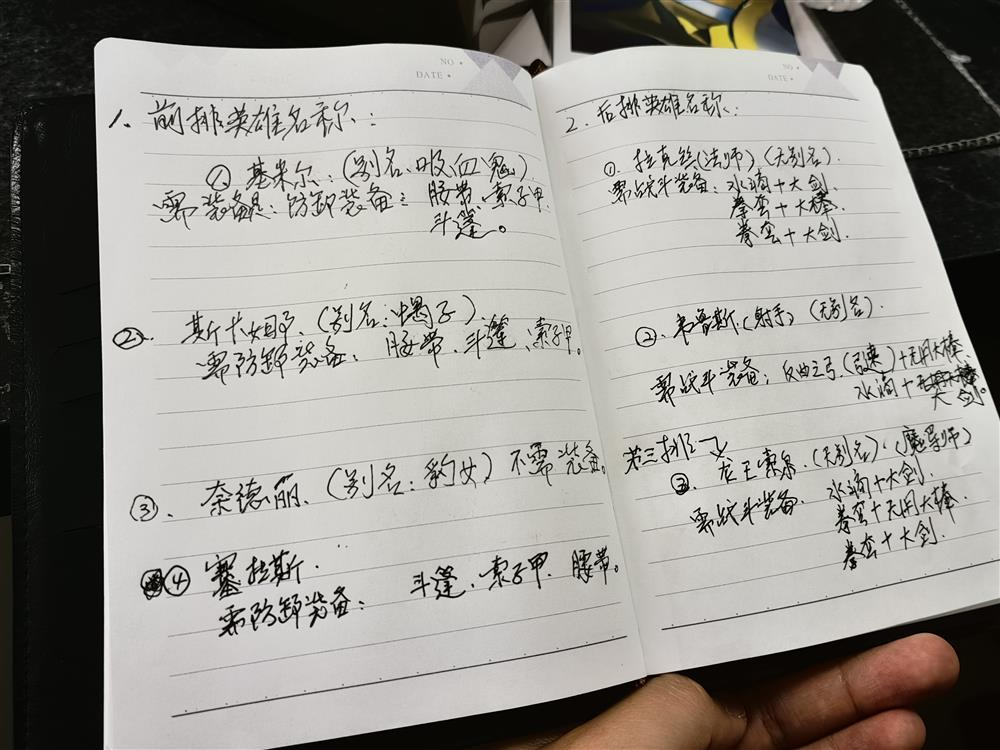 NO •
DATE •
1. 前排英雄名称:
① 基米尔:(别名、吸血鬼).
需装备是:防卸装备:腰带、索子甲.
斗篷。
②. 斯卡姐.(别名:蝎子).
需防卸装备:腰带、斗篷、索子甲。
③. 奈德丽.(别名:豹女)不需装备。
④ 塞拉斯.
需防卸装备:斗篷、索子甲、腰带。
NO •
DATE •
2. 后排英雄名称:
①. 拉克丝(法师)(无别名).
需战斗装备:水滴+大剑.
拳套+大棒.
拳套+大剑.
②. 韦鲁斯.(射手)(无别名).
需战斗装备:反曲之弓.(引速)+无用大棒.
水滴+大剑。
第三排
③. 龙王索泉.(无别名).(魔导师)
需战斗装备.水滴+大剑.
拳套+无用大棒.
拳套+大剑.